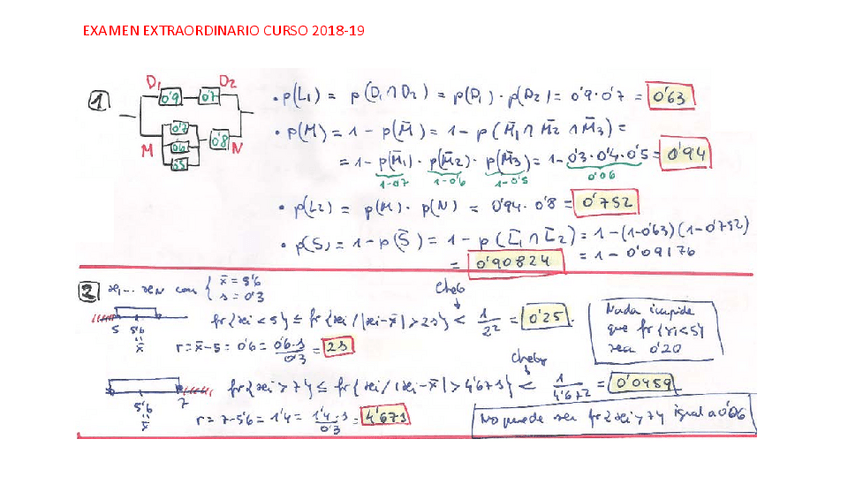 EXAMEN EXTRAORDINARIO CURSO 2018-19
1
D1 D2
0'9 0'7
0'7
M 0'6 0'8 N
0'5
• p(L1) = p(D1 ∩ D2) = p(D1) · p(D2) = 0'9 · 0'7 = 0'63
• p(M) = 1 - p(M̄) = 1 - p(M̄1 ∩ M̄2 ∩ M̄3) =
= 1 - p(M̄1) · p(M̄2) · p(M̄3) = 1 - 0'3 · 0'4 · 0'5 = 0'94
1-0'7 1-0'6 1-0'5 0'06
• p(L2) = p(M) · p(N) = 0'94 · 0'8 = 0'752
• p(S) = 1 - p(S̄) = 1 - p(L̄1 ∩ L̄2) = 1 - (1-0'63)(1-0'752)
= 0'90824 = 1 - 0'09176
2 x1 ... xN con { x̄ = 5'6
s = 0'3
Cheb
fr{xi < 5} ≤ fr{xi / |xi - x̄| > 2s} < 1/2² = 0'25.
5 5'6
x̄
r = x̄ - 5 = 0'6 = 0'6·s/0'3 = 2s
Nada impide
que fr{xi<5}
sea 0'20
Cheby
fr{xi > 7} ≤ fr{xi / |xi - x̄| > 4'67s} < 1/4'67² = 0'0459
5'6 7
x̄
r = 7 - 5'6 = 1'4 = 1'4·s/0'3 = 4'67s
No puede ser fr{xi > 7} igual a 0'06